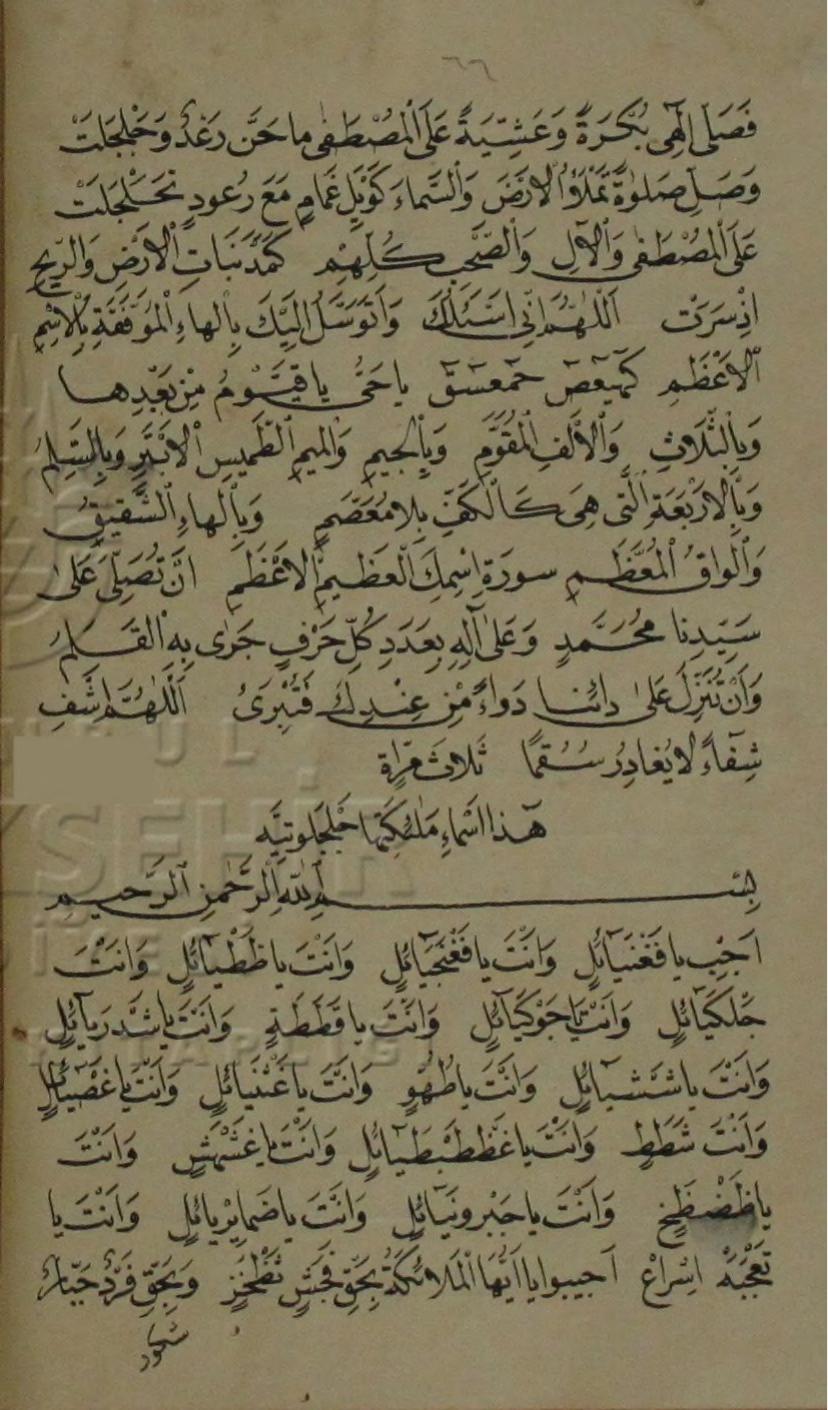 ٦٦
فَصَلِّ اِلٰهِى بُكْرَةً وَعَشِيَّةً عَلَى الْمُصْطَفٰى مَا حَنَّ رَعْدٌ وَجَلْجَلَتْ
وَصَلِّ صَلٰوةً تَمْلَؤُ الْاَرْضَ وَالسَّمَاءَ كَوَبْلِ غَمَامٍ مَعَ رُعُودٍ تَجَلْجَلَتْ
عَلَى الْمُصْطَفٰى وَالْاٰلِ وَالصَّحْبِ كُلِّهِمْ كَمَدِّ نَبَاتِ الْاَرْضِ وَالرِّيحِ
اِذْ سَرَتْ اَللّٰهُمَّ اِنِّى اَسْئَلُكَ وَاَتَوَسَّلُ اِلَيْكَ بِالْهَاءِ الْمُوَفَّقَةِ بِالْاِسْمِ
الْاَعْظَمِ كٓهٰيٰعٓصٓ حٰمٓعٓسٓقٓ يَا حَىُّ يَا قَيُّومُ مِنْ بَعْدِهَا
وَبِالثَّلَاثِ وَالْاَلِفِ الْمُقَوَّمِ وَبِالْجِيمِ وَالْمِيمِ الطَّمِيسِ الْاَبْتَرِ وَبِالسُّلَّمُ
وَبِالْاَرْبَعَةِ الَّتِى هِىَ كَالْكَفِّ بِلَا مِعْصَمٍ وَبِالْهَاءِ الشَّقِيقُ
وَالْوَاوُ الْمُعَظَّمِ سورَةِ اِسْمِكَ الْعَظِيمِ الْاَعْظَمِ اَنْ تُصَلِّىَ عَلٰى
سَيِّدِنَا مُحَمَّدٍ وَعَلٰى اٰلِهِ بِعَدَدِ كُلِّ حَرْفٍ جَرٰى بِهِ الْقَلَمُ
وَاَنْ تُنَزِّلَ عَلٰى دَائِنَا دَوَاءً مِنْ عِنْدِكَ فَنُبْرِئُ اَللّٰهُمَّ اشْفِ
شِفَاءً لَا يُغَادِرُ سُقْمًا ثَلَاثَ مَرَّاة
هٰذَا اَسْمَاءِ مَلٰئِكَتِهَا جَلْجَلُوتِيَّه
بِسْمِ اللّٰهِ الرَّحْمٰنِ الرَّحِيمِ
اَجِبْ يَا فَغْنَيَآئِلِ وَاَنْتَ يَا فَغْنَجْيَائِلٍ وَاَنْتَ يَا ظَطْيَآئِلٍ وَاَنْتَ
جَلْكَيَائِلٍ وَاَنْتَ يَا جَوْكَيَآئِلٍ وَاَنْتَ يَا قَطَطَةٍ وَاَنْتَ يَا شَدْرَيَآئِلٍ
وَاَنْتَ يَا شَشْيَآئِلٍ وَاَنْتَ يَا طُهُوٍ وَاَنْتَ يَا غَثْنَيَائِلٍ وَاَنْتَ يَا غَصْيَآئِلٍ
وَاَنْتَ شَطَطٍ وَاَنْتَ يَا غَظْطَبْطَيَآئِلٍ وَاَنْتَ يَا غَشْهَشٍ وَاَنْتَ
يَا ظَضْظَخٍ وَاَنْتَ يَا جَبْرُونَيَآئِلٍ وَاَنْتَ يَا ضَمَايِرْيَائِلٍ وَاَنْتَ يَا
اِسْرَاعْ اَجِيبُوا يَا اَيُّهَا الْمَلَائِكَةُ بِحَقِّ فَجَشٍ ثَظْخَزٍ وَبِحَقِّ فَرْدٌ جَبَّارٌ